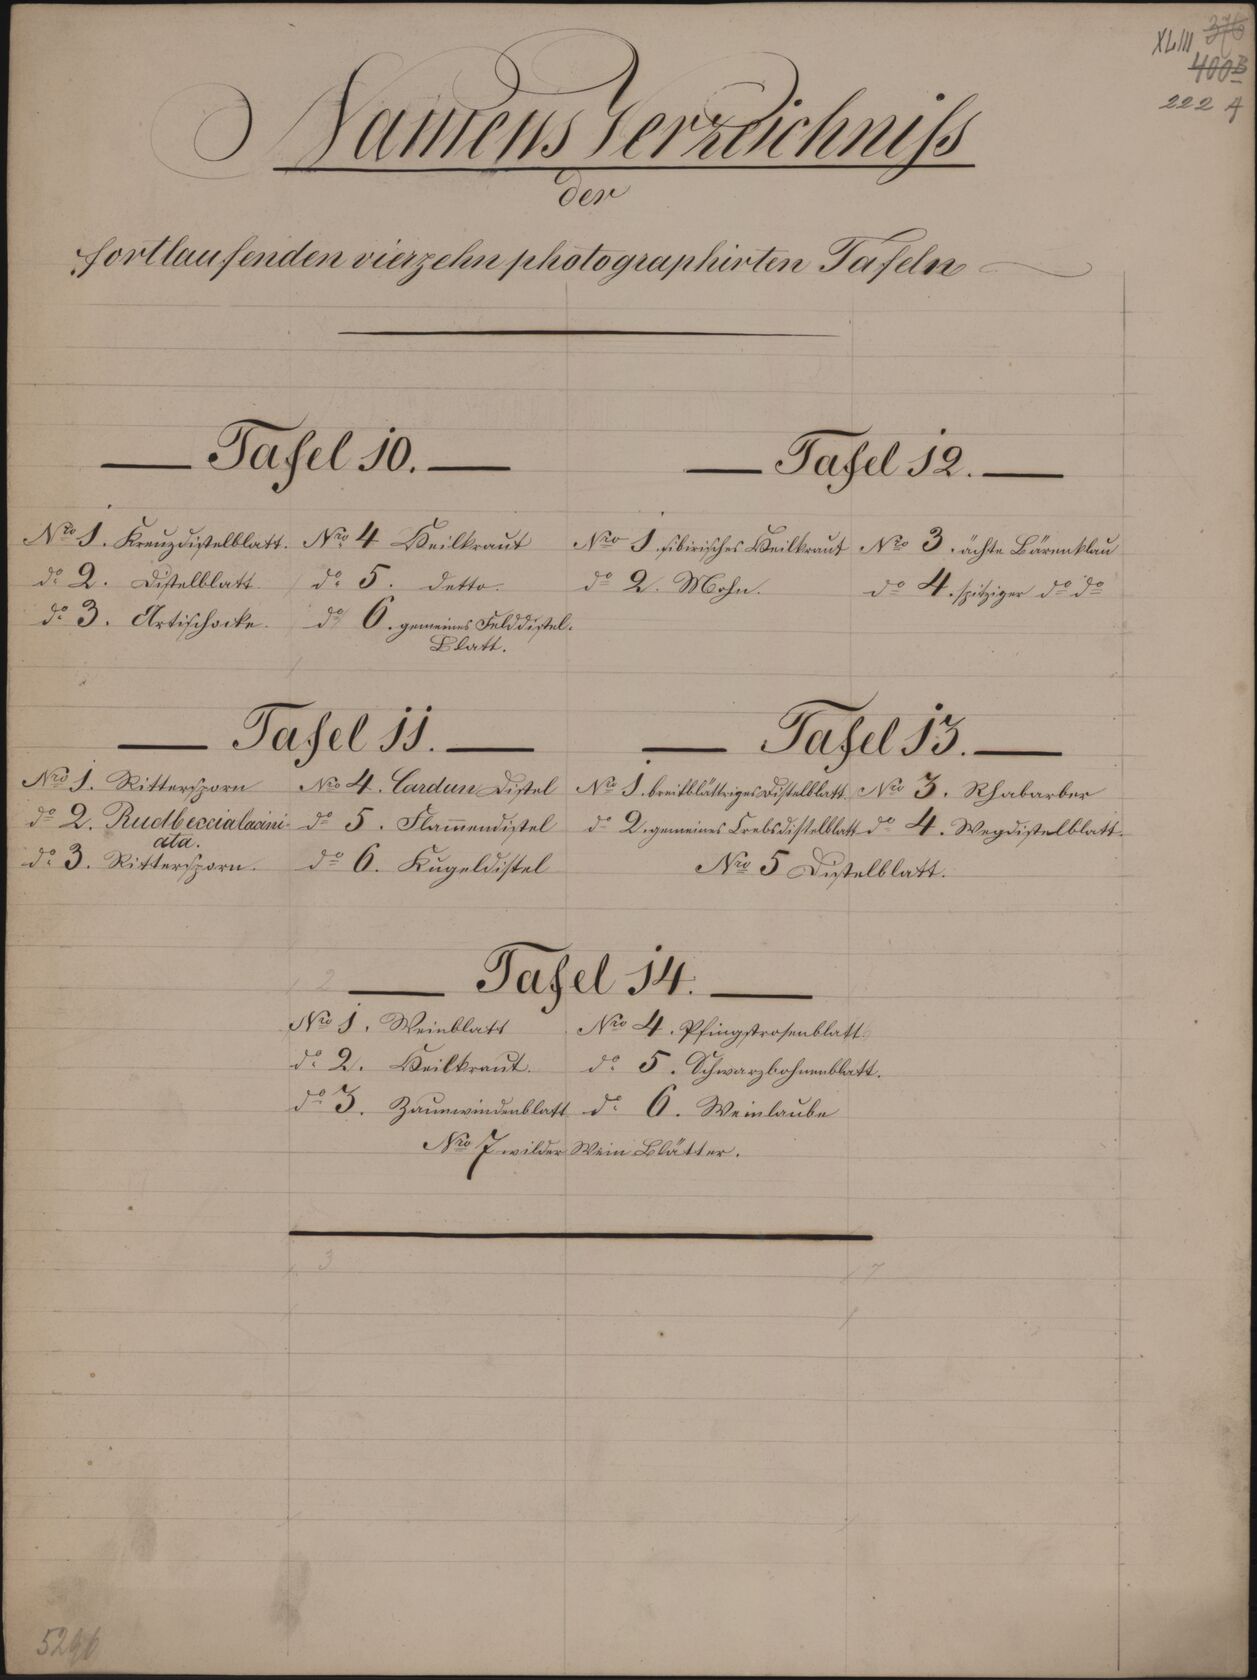 XLIII 376
400B
222 A
Namens Verzeichniss
der
fortlaufenden vierzehn photographirten Tafeln
Tafel 10.
Nro 1. Kreuzdistelblatt. Nro 4 Beilkraut
do 2. Distelblatt. do 5. detto.
do 3. Artischocke. do 6. gemeines Felddistel.
Blatt.
Tafel 12.
Nro 1. sibirisches Beilkraut Nro 3. ächte Bärenklau
do 2. Mohn. do 4. spitziger do do
Tafel 11.
Nro 1. Rittersporn Nro 4. Cardun Distel
do 2. Rudbeccialacini- do 5. Flammendistel
ata.
do 3. Rittersporn. do 6. Kugeldistel
Tafel 13.
Nro 1. breitblättriges Distelblatt Nro 3. Rhabarber
do 2. gemeines Krebsdistelblatt do 4. Wegdistelblatt.
Nro 5 Distelblatt.
Tafel 14.
Nro 1. Weinblatt Nro 4. Pfingstrosenblatt.
do 2. Beilkraut. do 5. Schwarzbohnenblatt.
do 3. Zaunwindenblatt do 6. Weinlaube
Nro 7 wilder Wein Blätter.